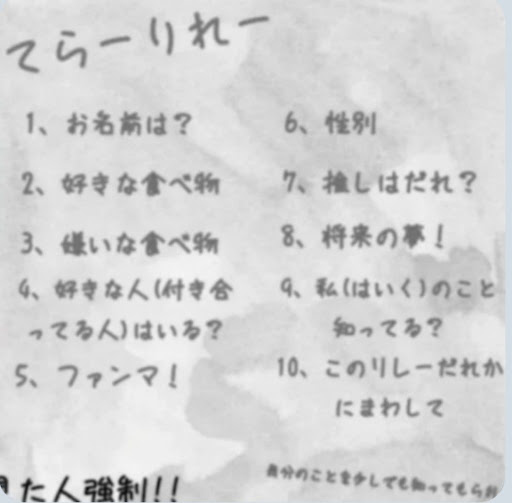 てらーりれー
1、お名前は？
2、好きな食べ物
3、嫌いな食べ物
4、好きな人(付き合
ってる人)はいる？
5、ファンマ！
6、性別
7、推しはだれ？
8、将来の夢！
9、私(はいく)のこと
知ってる？
10、このリレーだれか
にまわして
た人強制!!
自分のことを少しでも知ってもらお